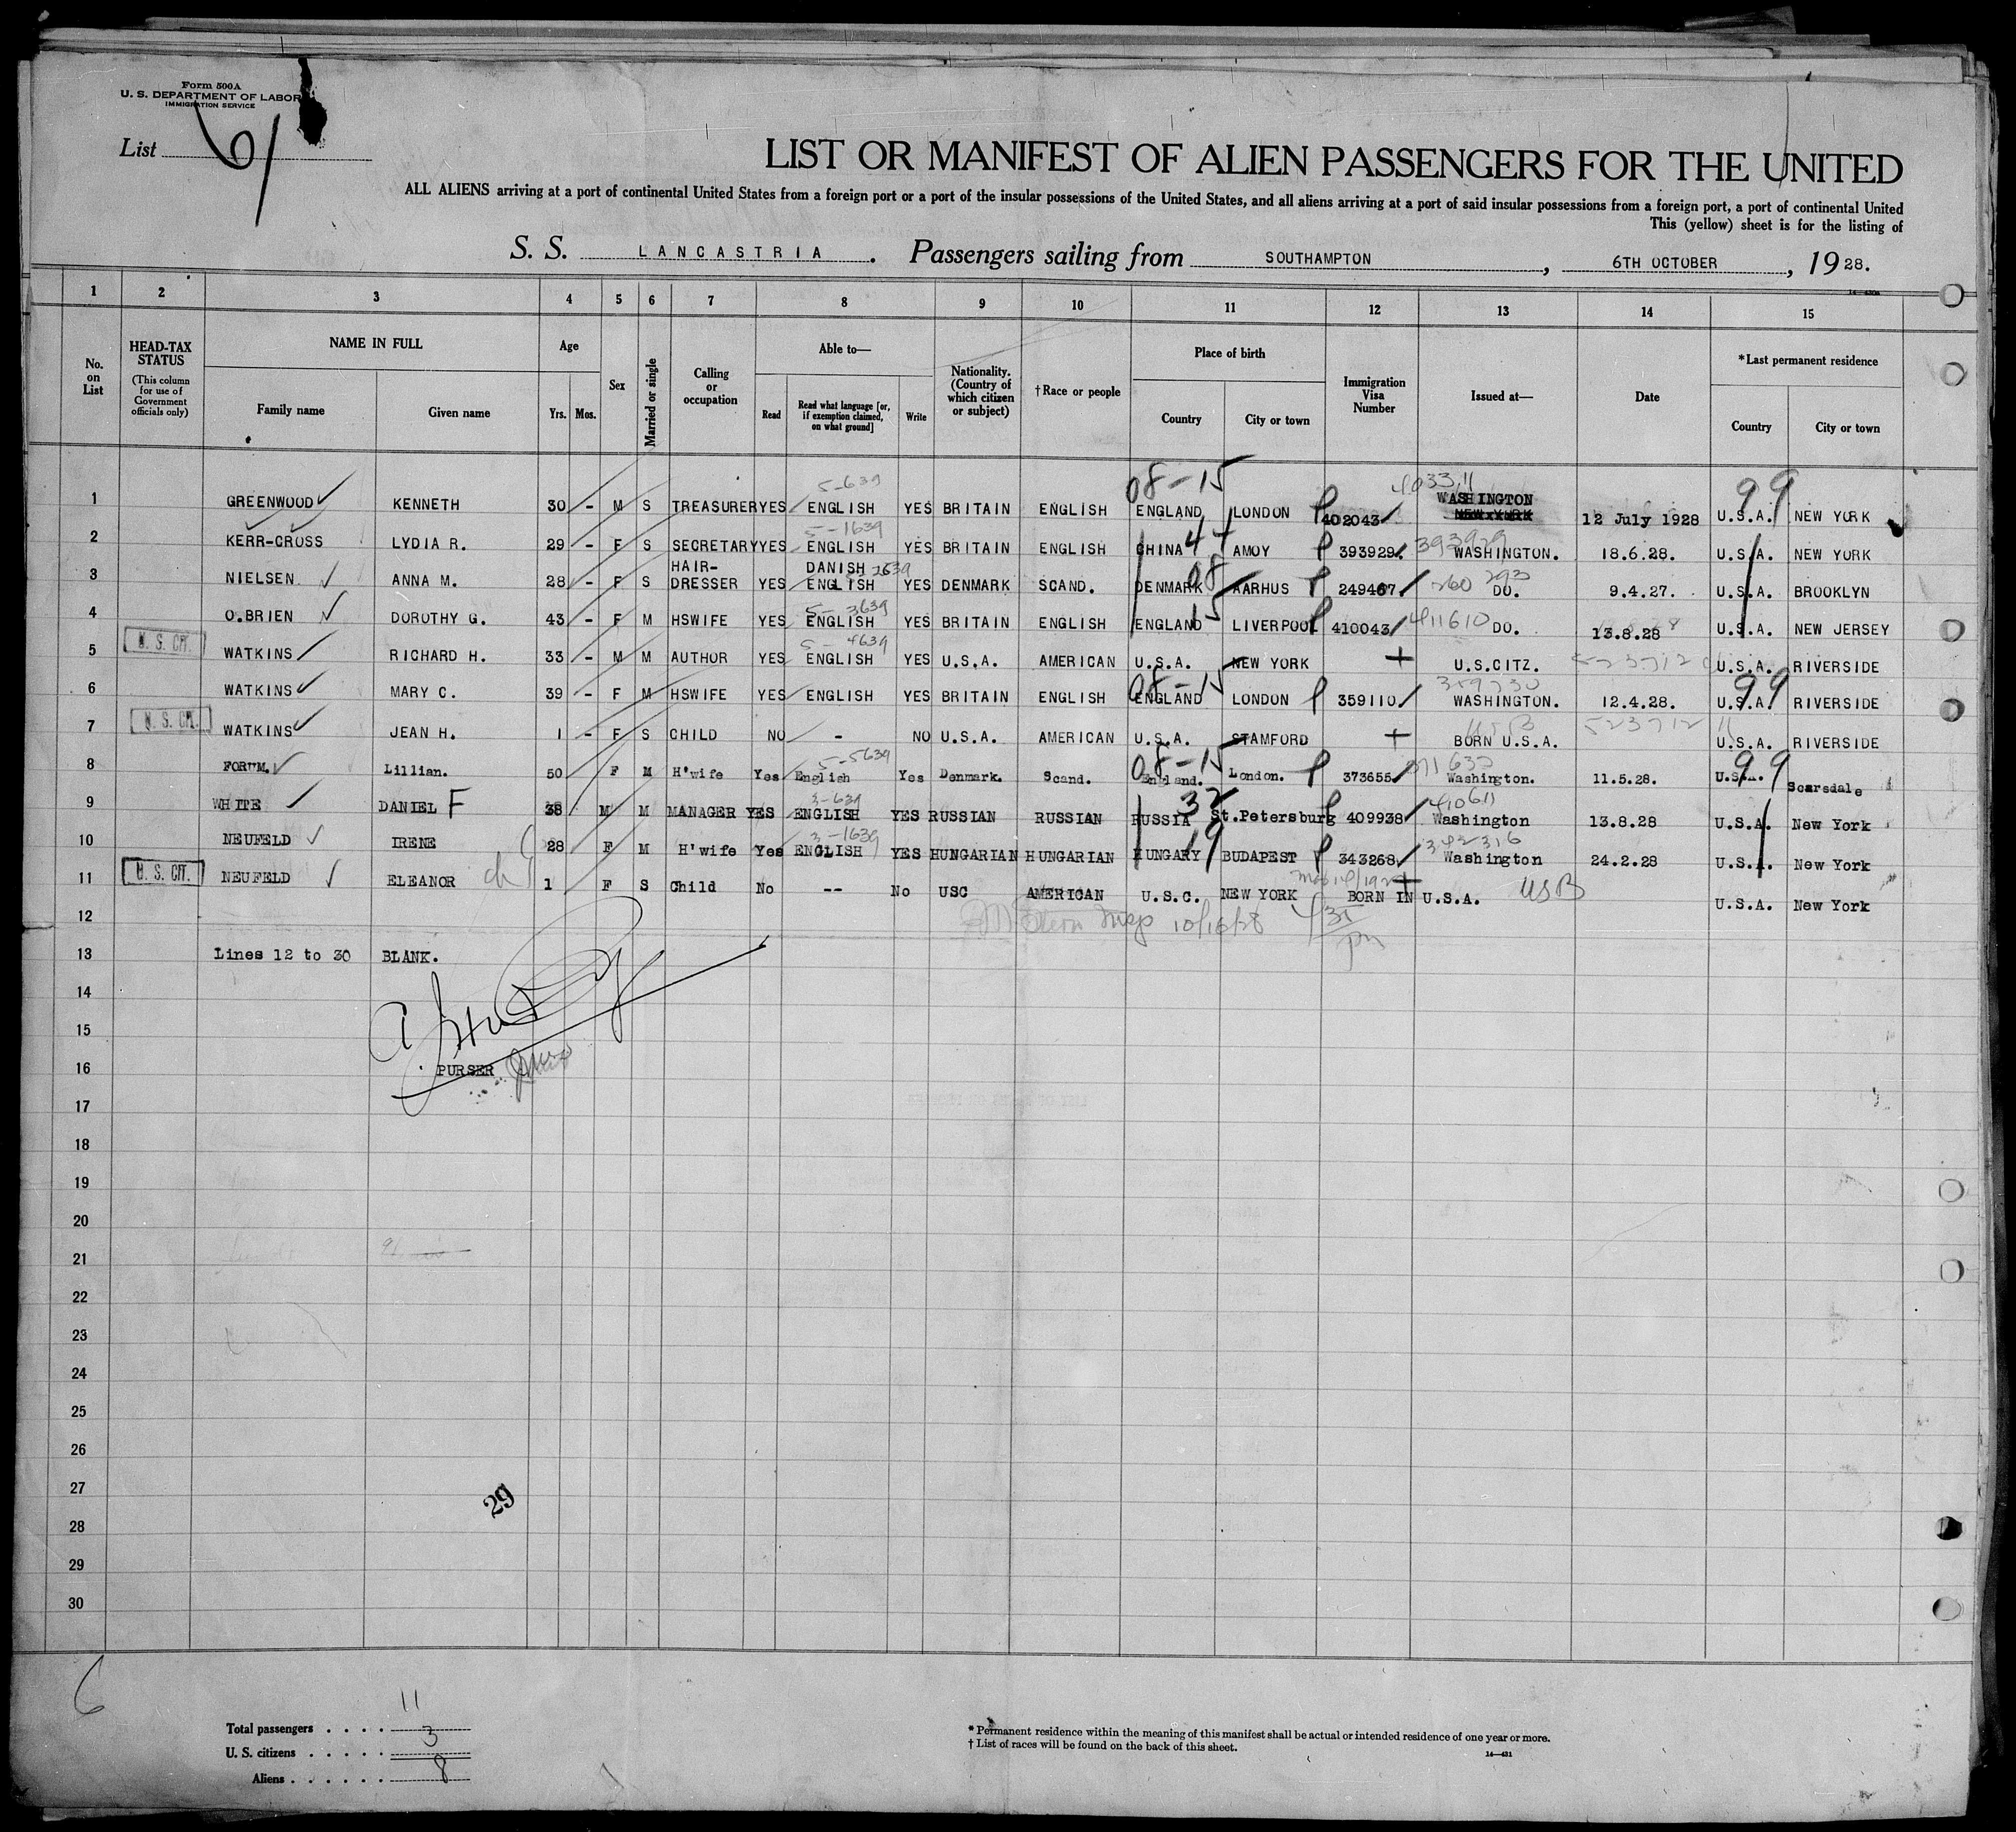 Form 500A
U. S. DEPARTMENT OF LABOR
IMMIGRATION SERVICE
List 61
LIST OR MANIFEST OF ALIEN PASSENGERS FOR THE UNITED
ALL ALIENS arriving at a port of continental United States from a foreign port or a port of the insular possessions of the United States, and all aliens arriving at a port of said insular possessions from a foreign port, a port of continental United
This (yellow) sheet is for the listing of
S. S. LANCASTRIA. Passengers sailing from SOUTHAMPTON, 6TH OCTOBER, 1928.
1 2 3 4 5 6 7 8 9 10 11 12 13 14 15
No. on List
HEAD-TAX STATUS (This column for use of Government officials only)
NAME IN FULL
Family name Given name
Age
Yrs. Mos.
Sex
Married or single
Calling or occupation
Able to—
Read Read what language [or, if exemption claimed, on what ground] Write
Nationality. (Country of which citizen or subject)
†Race or people
Place of birth
Country City or town
Immigration Visa Number
Issued at—
Date
*Last permanent residence
Country City or town
5-639 08-15 99
1 GREENWOOD KENNETH 30 - M S TREASURER YES ENGLISH YES BRITAIN ENGLISH ENGLAND LONDON 402043 WASHINGTON 12 July 1928 U.S.A. NEW YORK
5-1639 44 393929
2 KERR-CROSS LYDIA R. 29 - F S SECRETARY YES ENGLISH YES BRITAIN ENGLISH CHINA AMOY 393929 WASHINGTON. 18.6.28. U.S.A. NEW YORK
2639 08
3 NIELSEN ANNA M. 28 - F S HAIR-DRESSER YES DANISH ENGLISH YES DENMARK SCAND. DENMARK AARHUS 249467 DO. 9.4.27. U.S.A. BROOKLYN
5-3639 15 411610
4 O.BRIEN DOROTHY G. 43 - F M HSWIFE YES ENGLISH YES BRITAIN ENGLISH ENGLAND LIVERPOOL 410043 DO. 13.8.28 U.S.A. NEW JERSEY
5-4639
5 U. S. CIT. WATKINS RICHARD H. 33 - M M AUTHOR YES ENGLISH YES U.S.A. AMERICAN U.S.A. NEW YORK + U.S.CITZ. 523712 U.S.A. RIVERSIDE
08-15 99
6 WATKINS MARY C. 39 - F M HSWIFE YES ENGLISH YES BRITAIN ENGLISH ENGLAND LONDON 359110 WASHINGTON. 12.4.28. U.S.A. RIVERSIDE
USB 523712
7 U. S. CIT. WATKINS JEAN H. 1 - F S CHILD NO - NO U.S.A. AMERICAN U.S.A. STAMFORD + BORN U.S.A. U.S.A. RIVERSIDE
5-5639 08-15 99
8 FORUM. Lillian. 50 F M H'wife Yes English Yes Denmark. Scand. England. London. 373655 Washington. 11.5.28. U.S.A. Scarsdale
3-639 32 410611
9 WHITE DANIEL F 38 M M MANAGER YES ENGLISH YES RUSSIAN RUSSIAN RUSSIA St.Petersburg 409938 Washington 13.8.28 U.S.A. New York
3-1639 19 342316
10 NEUFELD IRENE 28 F M H'wife Yes ENGLISH YES HUNGARIAN HUNGARIAN HUNGARY BUDAPEST 343268 Washington 24.2.28 U.S.A. New York
11 U. S. CIT. NEUFELD ELEANOR 1 F S Child No -- No USC AMERICAN U.S.C. NEW YORK BORN IN U.S.A. USB U.S.A. New York
12 10/16/28
13 Lines 12 to 30 BLANK.
14
15
16 PURSER
17
18
19
20
21
22
23
24
25
26
27
29
28
29
30
6
Total passengers . . . . 11
U. S. citizens . . . . . 3
Aliens . . . . . . 8
* Permanent residence within the meaning of this manifest shall be actual or intended residence of one year or more.
† List of races will be found on the back of this sheet.
14—431